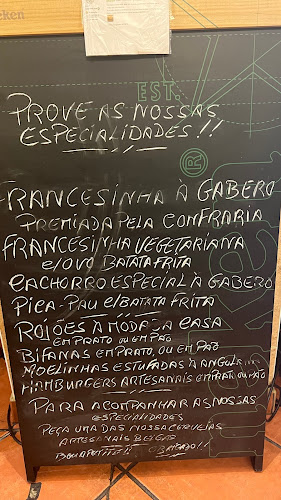 EST.
PROVE AS NOSSAS
ESPECIALIDADES!!
FRANCESINHA À GABERO
PREMIADA PELA CONFRARIA
FRANCESINHA VEGETARIANA
C/OVO BATATA FRITA
CACHORRO ESPECIAL À GABERO
PICA-PAU C/BATATA FRITA
ROJÕES À MODA DA CASA
EM PRATO OU EM PÃO
BIFANAS EM PRATO, OU EM PÃO
MOELINHAS ESTUFADAS À
HAMBURGERS ARTESANAIS EM PRATO OU PÃO
PARA ACOMPANHAR AS NOSSAS
ESPECIALIDADES
PEÇA UMA DAS NOSSAS CERVEJAS
ARTESANAIS
BON APPETITE!!